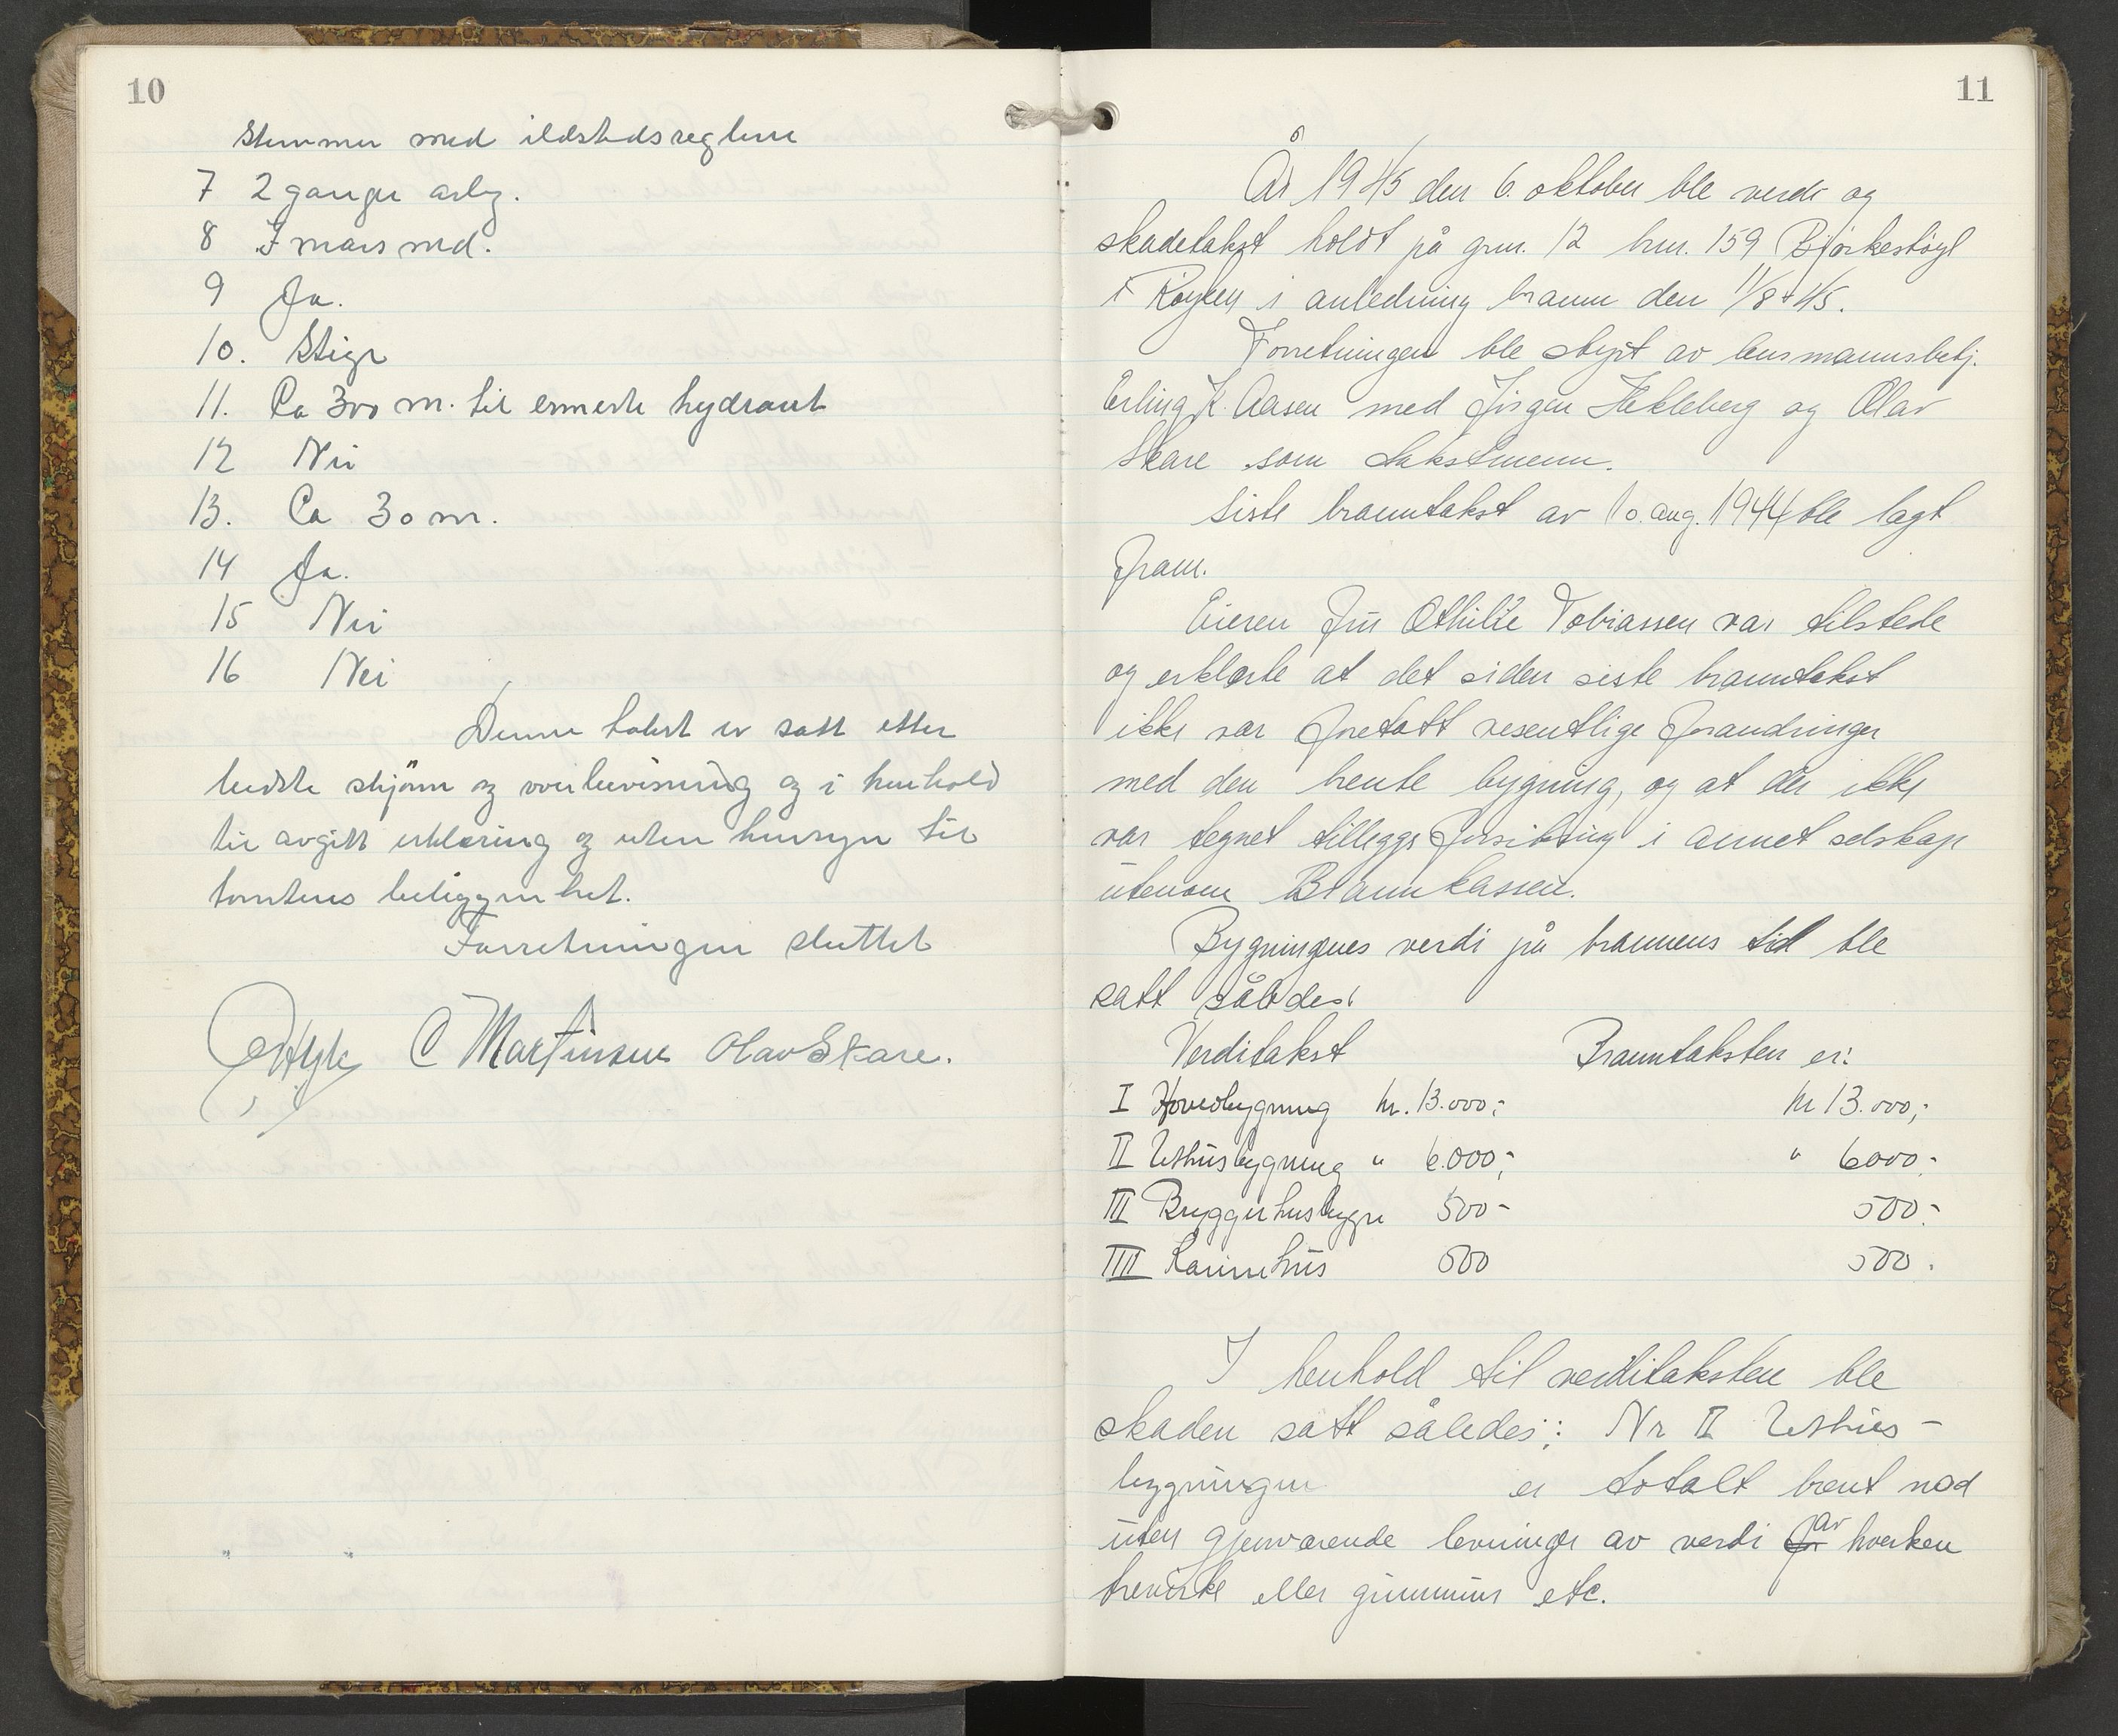 10
Stemmer med ildstedsreglene
7 2 ganger årlig.
8 I mars md.
9 Ja.
10. Stige
11. Ca 300 m. til ermeste hydrant
12 Nei
13. Ca 30 m.
14 Ja.
15 Nei
16 Nei
Denne takst er satt etter
bedste skjönn og overbevisning og i henhold
til avgitt erklæring og uten hensyn til
tomtens beliggenhet.
Forretningen sluttet
C Martinsen Olav Skare.
11
År 1945 den 6. oktober ble verdi og
skadetakst holdt på gnr. 12 bnr. 159 Bjørkestøyl
i Røyken i anledning brann den 11/8-45.
Forretningen ble styrt av lensmannsbetj.
Erling K. Aasen med Jørgen Hekleberg og Olav
Skare som takstmenn.
Siste branntakst av 10. aug. 1944 ble lagt
fram.
Eieren fru Othilie Tobiassen var tilstede
og erklærte at det siden siste branntakst
ikke var foretatt vesentlige forandringer
med den brente bygning, og at der ikke
var tegnet tilleggsforsikring i annet selskap
utenom Brannkassen.
Bygningenes verdi på brannens tid ble
satt således:
Verditakst Branntaksten er:
I Hovedbygning kr. 13.000,- kr 13.000,-
II Uthusbygning " 6.000,- " 6000.-
III Bryggerhusbygn 500- 500.-
IIII Kaninhus 500 500.
I henhold til verditaksten ble
skaden satt således: Nr II Uthus-
bygningen er totalt brent ned
uten gjenværende levninger av verdi av hverken
trevirke eller grunnmur etc.